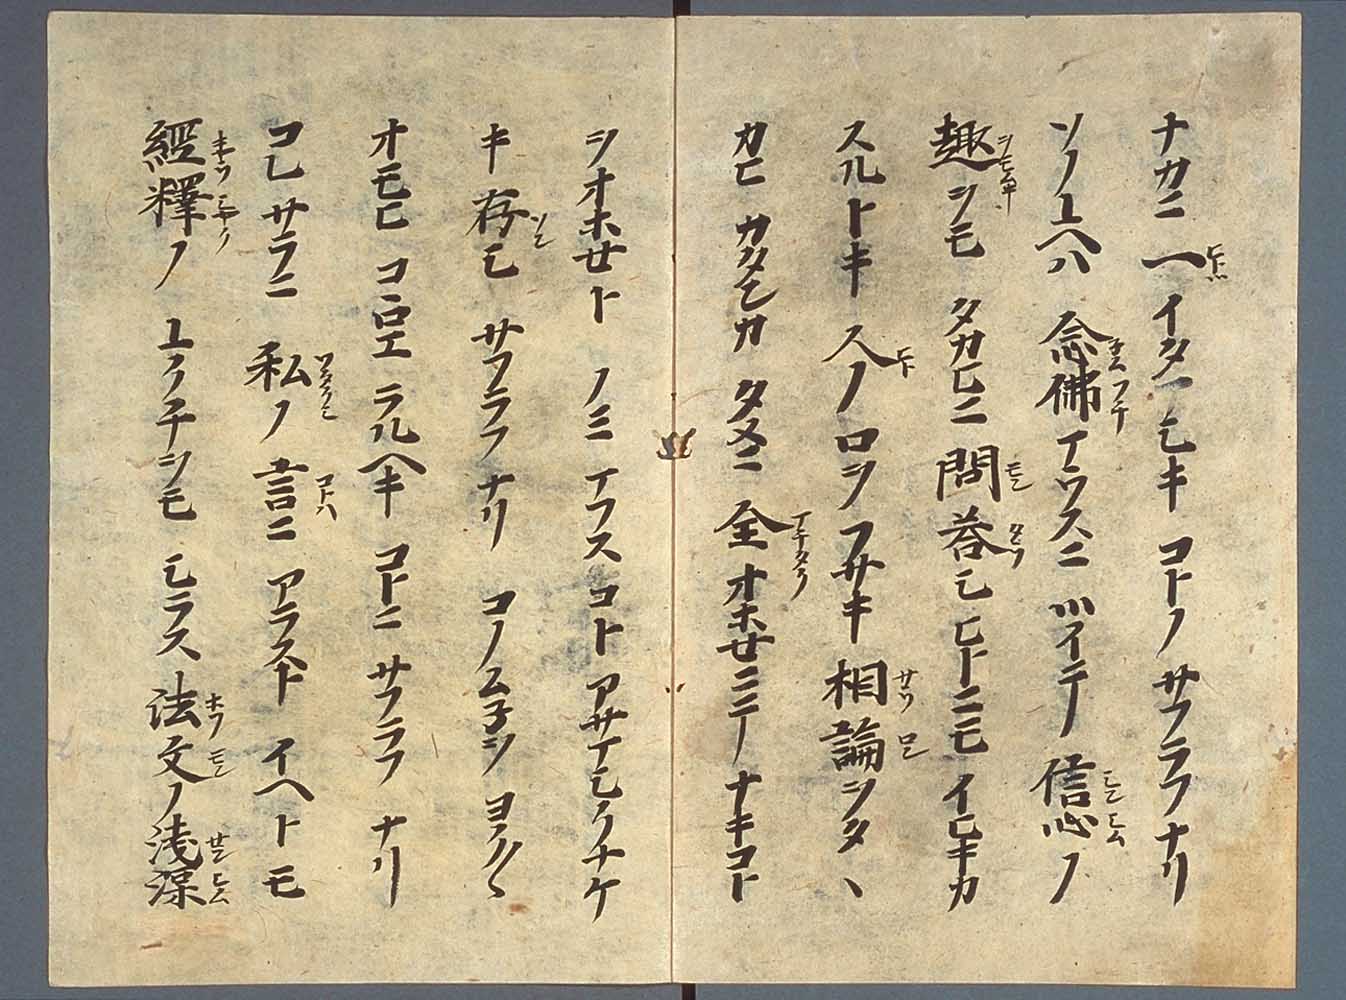 ナカニ 一イタマシキ コトノ サフラフナリ
ソノユヘハ 念佛マウスニ ツイテ 信心ノ
趣ヲモ タカヒニ 問答シ ヒトニモ イヒキカ
スルトキ 人ノ 口ヲ フサキ 相論ヲタヽ
カヒ カタンカ タメニ 全オホセニテ ナキコト
ヲオホセト ノミ マフス コト アサマシクナケ
キ 存シ サフラフナリ コノムネヲ ヨク〱
オモヒ コヽロエ ラルヘキ コトニ サフラフ ナリ
コレ サラニ 私ノ 言ニ アラスト イヘトモ
經釋ノ ユクチヲモ シラス 法文ノ浅深